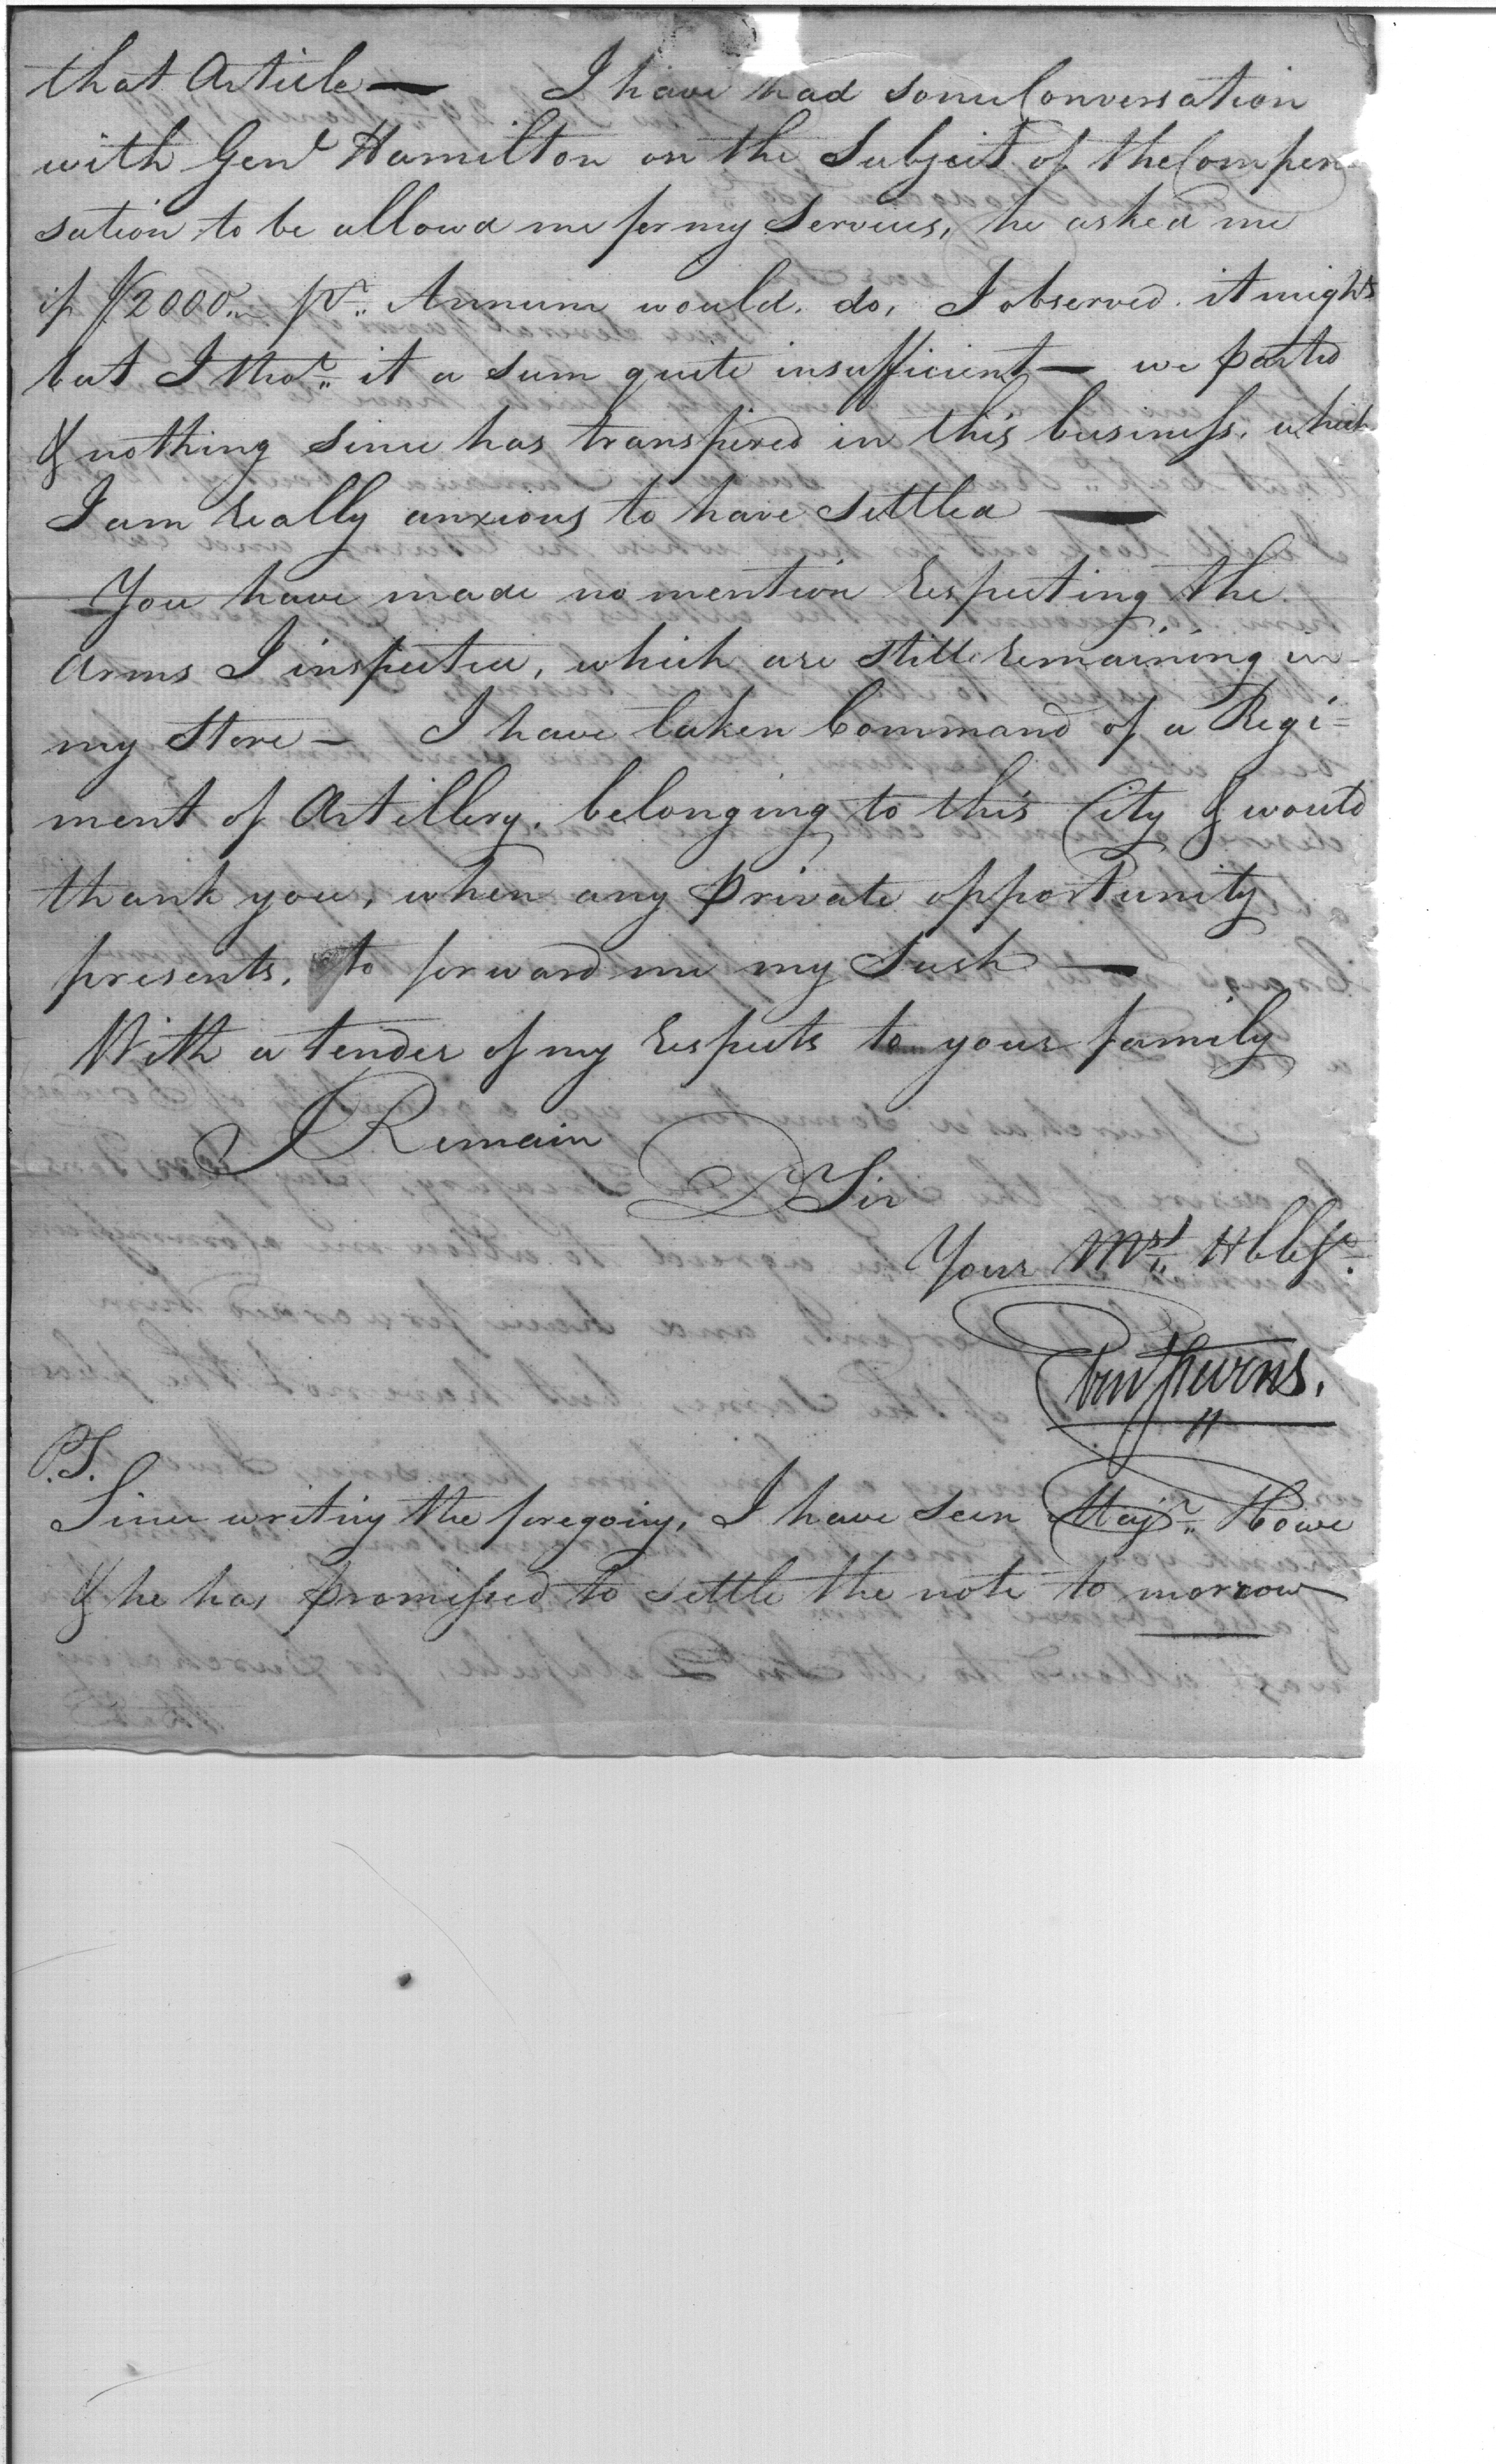 that Article — I have had some Conversation
with Genl Hamilton on the Subject of the Compen
sation to be allowd me for my Services, he asked me
if $2000.. pr.. Annum would. do, I observed. it might
but I thot.. it a sum quite insufficient — we parted
& nothing since has transpired in this business. which
I am really anxious to have settled —
You have made no mention respecting the
Arms I inspected, which are still remaining in
my Store — I have taken Command of a Regi=
ment of Artillery. belonging to this City & would
thank you, when any private opportunity
presents, to forward me my Sash —
With a tender of my respects to your family
I Remain
D Sir
Your Mst.. Hble St.
Eben Stevens.
P.S.
Since writing the foregoing, I have seen Majr.. Howe
& he has promissed to settle the note to morrow